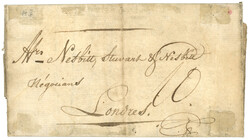 Nesbitt, Stewart & Nesbitt
Négocians
Londres.